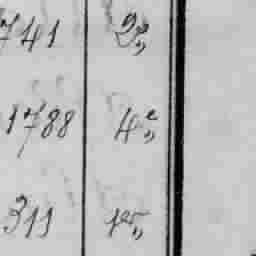 741 2e„
1788 4e„
311 1er„